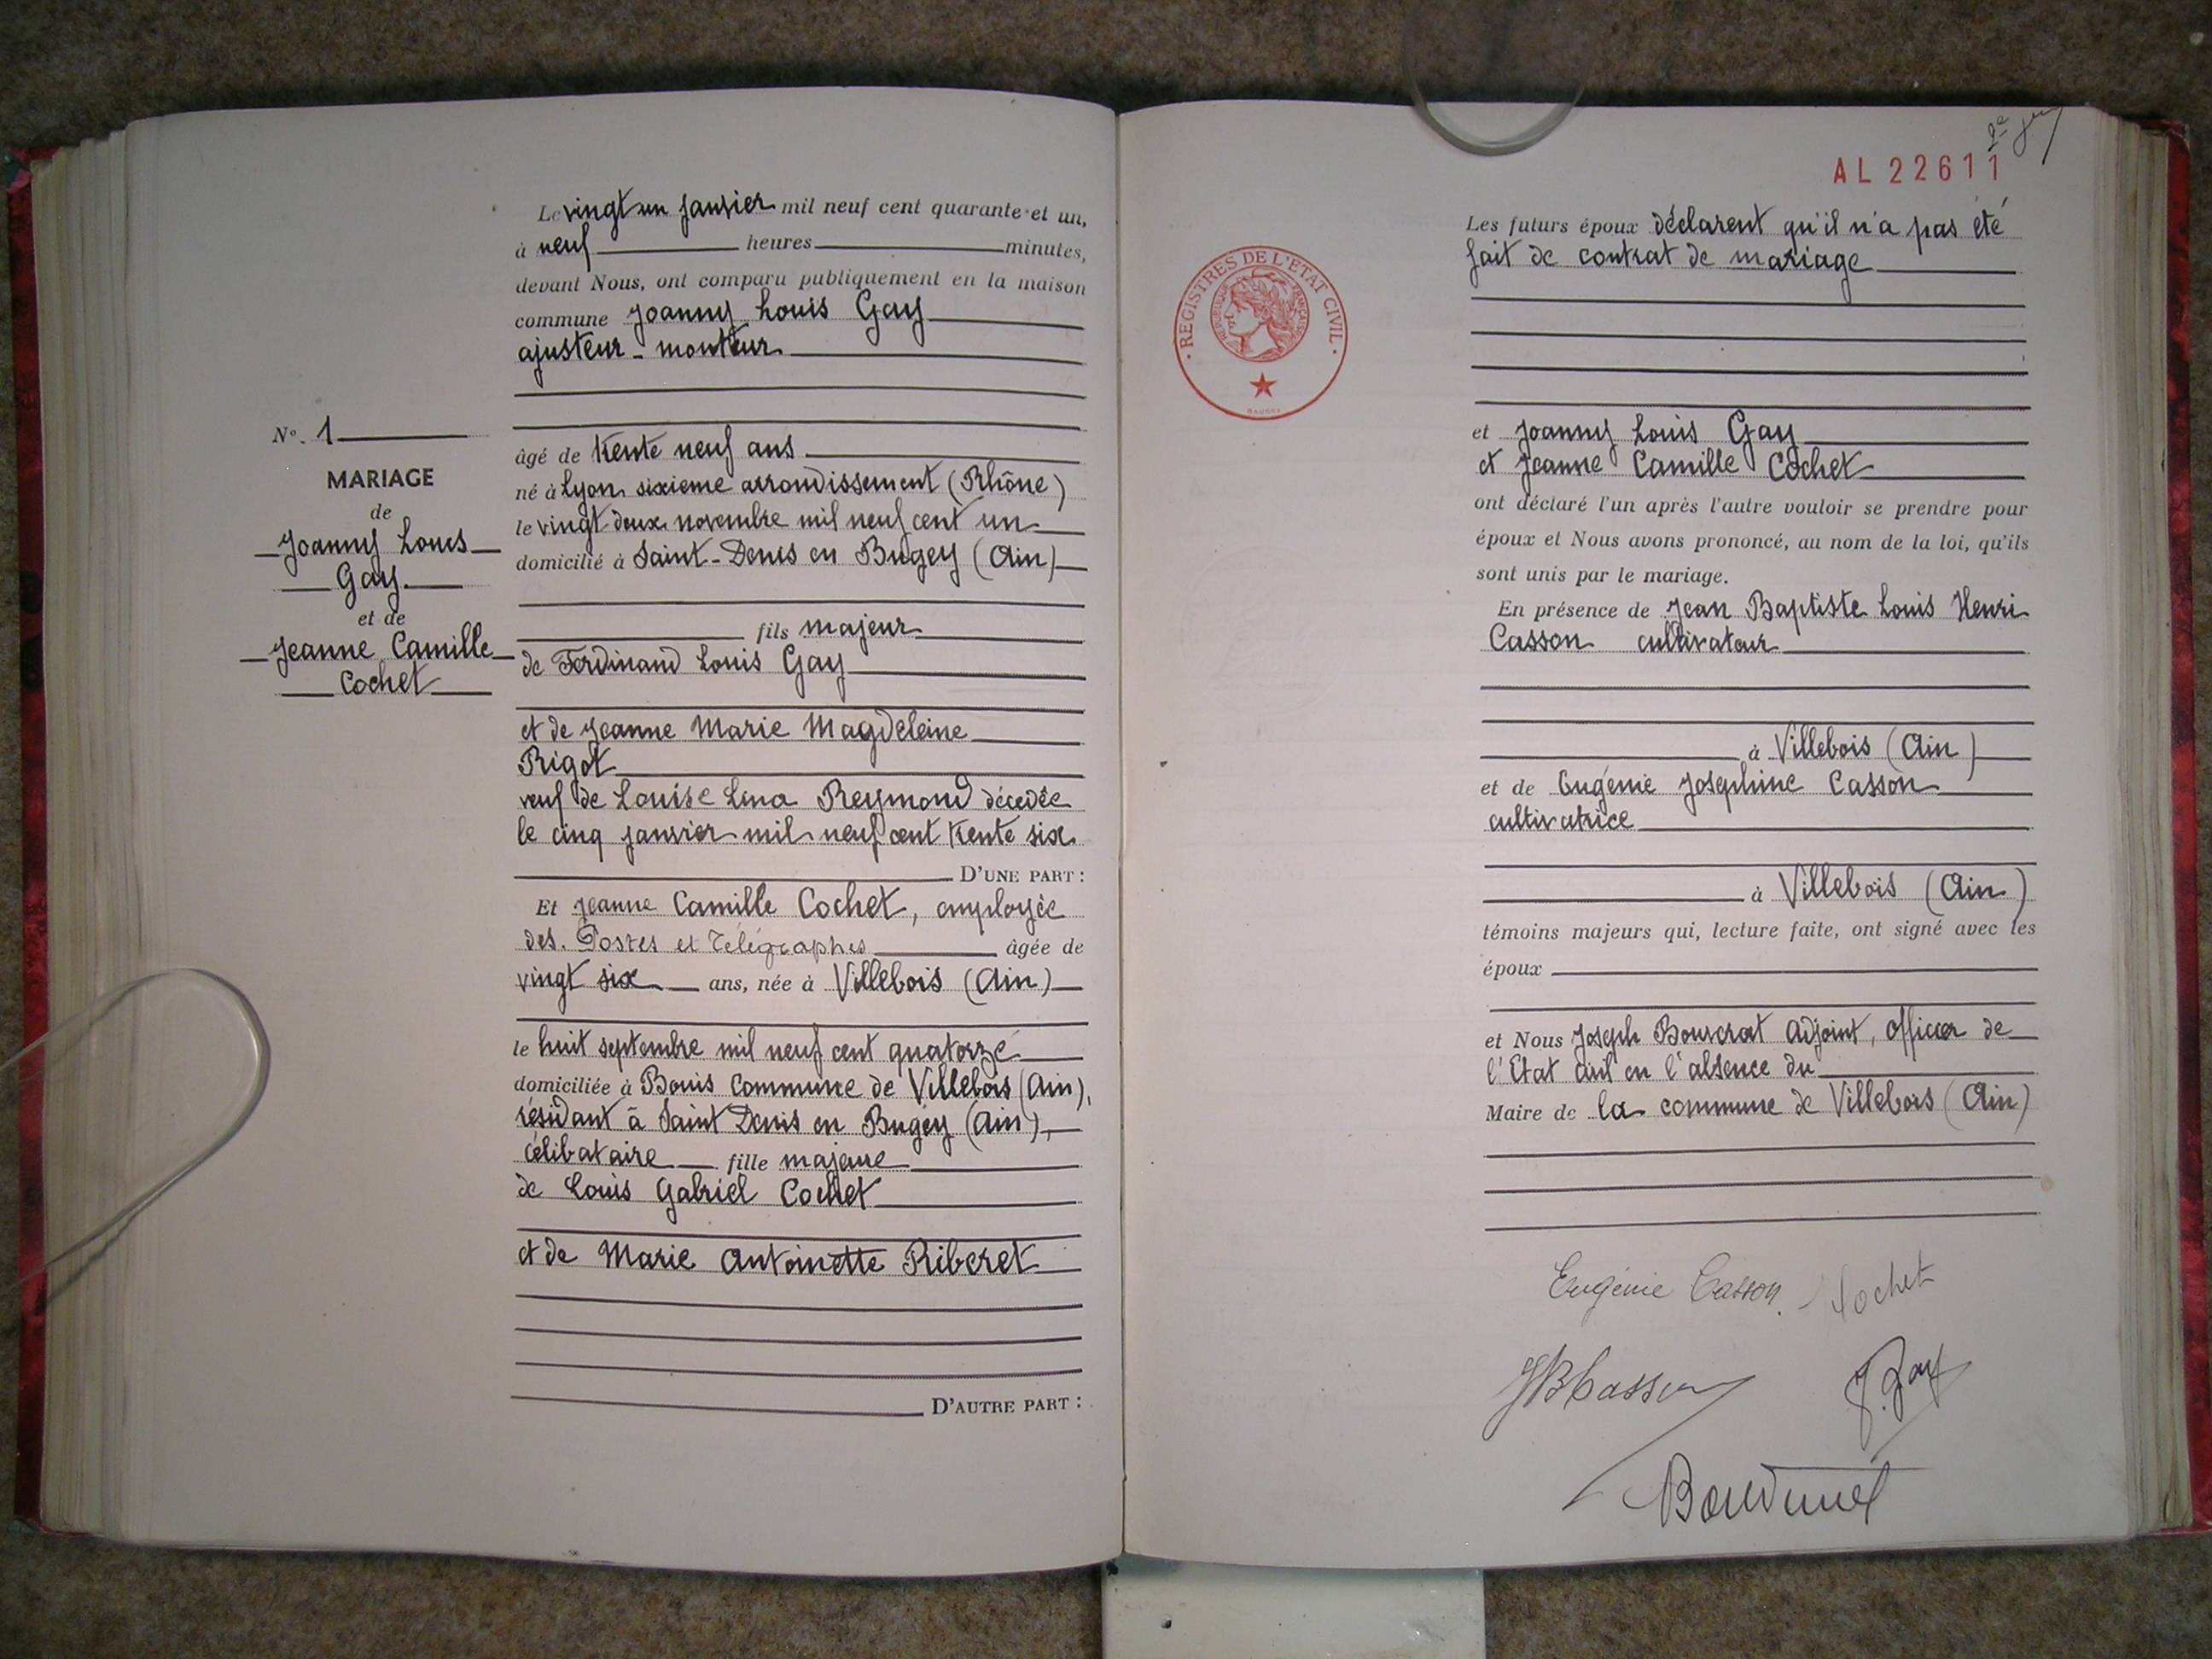 Le vingt un janvier mil neuf cent quarante et un,
à neuf heures minutes,
devant Nous, ont comparu publiquement en la maison
commune Joanny Louis Gay
ajusteur - monteur
âgé de trente neuf ans
né à Lyon sixieme arrondissement (Rhône)
le vingt deux novembre mil neuf cent un
domicilié à Saint-Denis en Bugey (Ain)
fils majeur
de Ferdinand Louis Gay
et de Jeanne Marie Magdeleine
Rigot
veuf de Louise Lina Reymond décedée
le cinq janvier mil neuf cent trente six
D'UNE PART :
Et Jeanne Camille Cochet, employée
des. Postes et Télégraphes âgée de
vingt six ans, née à Villebois (Ain)
le huit septembre mil neuf cent quatorze
domiciliée à Bouis Commune de Villebois (Ain),
résidant à Saint Denis en Bugey (Ain),
célibataire fille majeure
de Louis Gabriel Cochet
et de Marie Antoinette Riberet
D'AUTRE PART :
N°. 1
MARIAGE
de
Joanny Louis
Gay.
et de
Jeanne Camille
Cochet
2e
AL22611
REGISTRES DE L'ETAT CIVIL
REPUBLIQUE FRANÇAISE
Les futurs époux déclarent qu'il n'a pas été
fait de contrat de mariage
et Joanny Louis Gay
et Jeanne Camille Cochet
ont déclaré l'un après l'autre vouloir se prendre pour
époux et Nous avons prononcé, au nom de la loi, qu'ils
sont unis par le mariage.
En présence de Jean Baptiste Louis Henri
Casson cultivateur
à Villebois (Ain)
et de Eugénie Joséphine Casson
cultivatrice
à Villebois (Ain)
témoins majeurs qui, lecture faite, ont signé avec les
époux
et Nous Joseph adjoint, officier de
l'Etat civil en l'absence du
Maire de la commune de Villebois (Ain)
Eugénie Casson. Cochet
JB Casson J. Gay